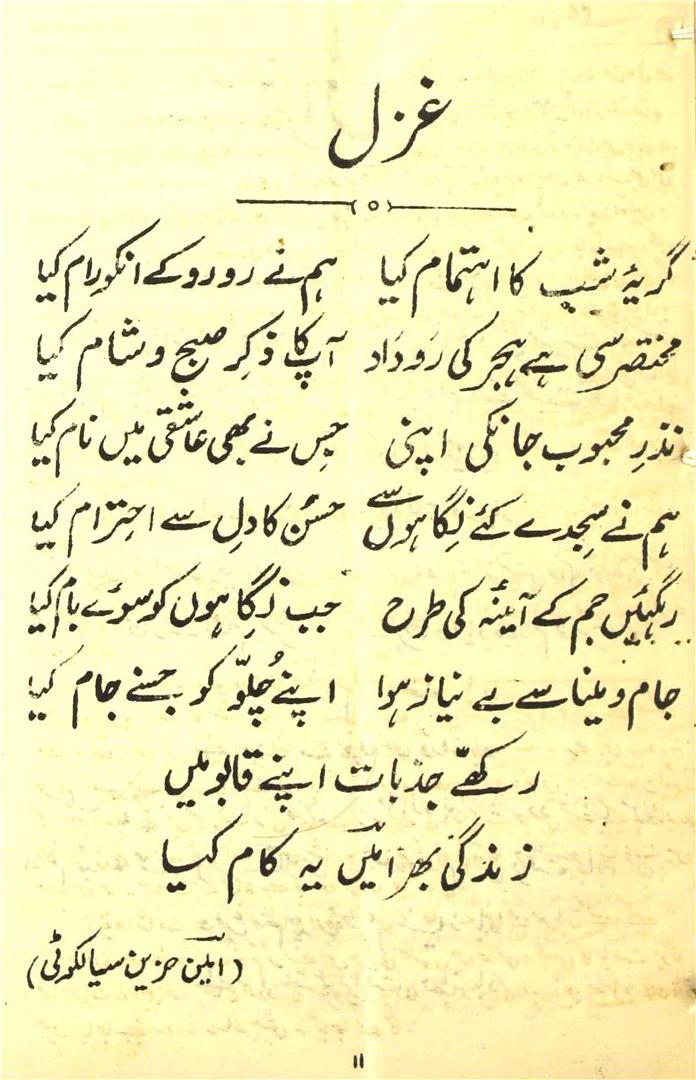 غزل
گریۂ شب کا اہتمام کیا ہم نے رو رو کے انکو رام کیا
مختصر سی ہے ہجر کی رَودَاد آپ کا ذکرِ صبح و شام کیا
نذرِ محبوب جانکی اپنی جِس نے بھی عاشقی میں نام کیا
ہم نے سجدے کئے نِگاہوں سے حسُن کا دِل سے احتِرام کیا
رہگئیں جم کے آئینہ کی طرح جب نِگاہوں کو سوئے بام کیا
جام و مینا سے بے نیاز ہوا اپنے چُلّو کو جسنے جام کیا
رکھّے جذبات اپنے قابو میں
زندگی بھر امیںؔ یہ کام کیا
(امینؔ حزیں سیالکوٹی)
۱۱